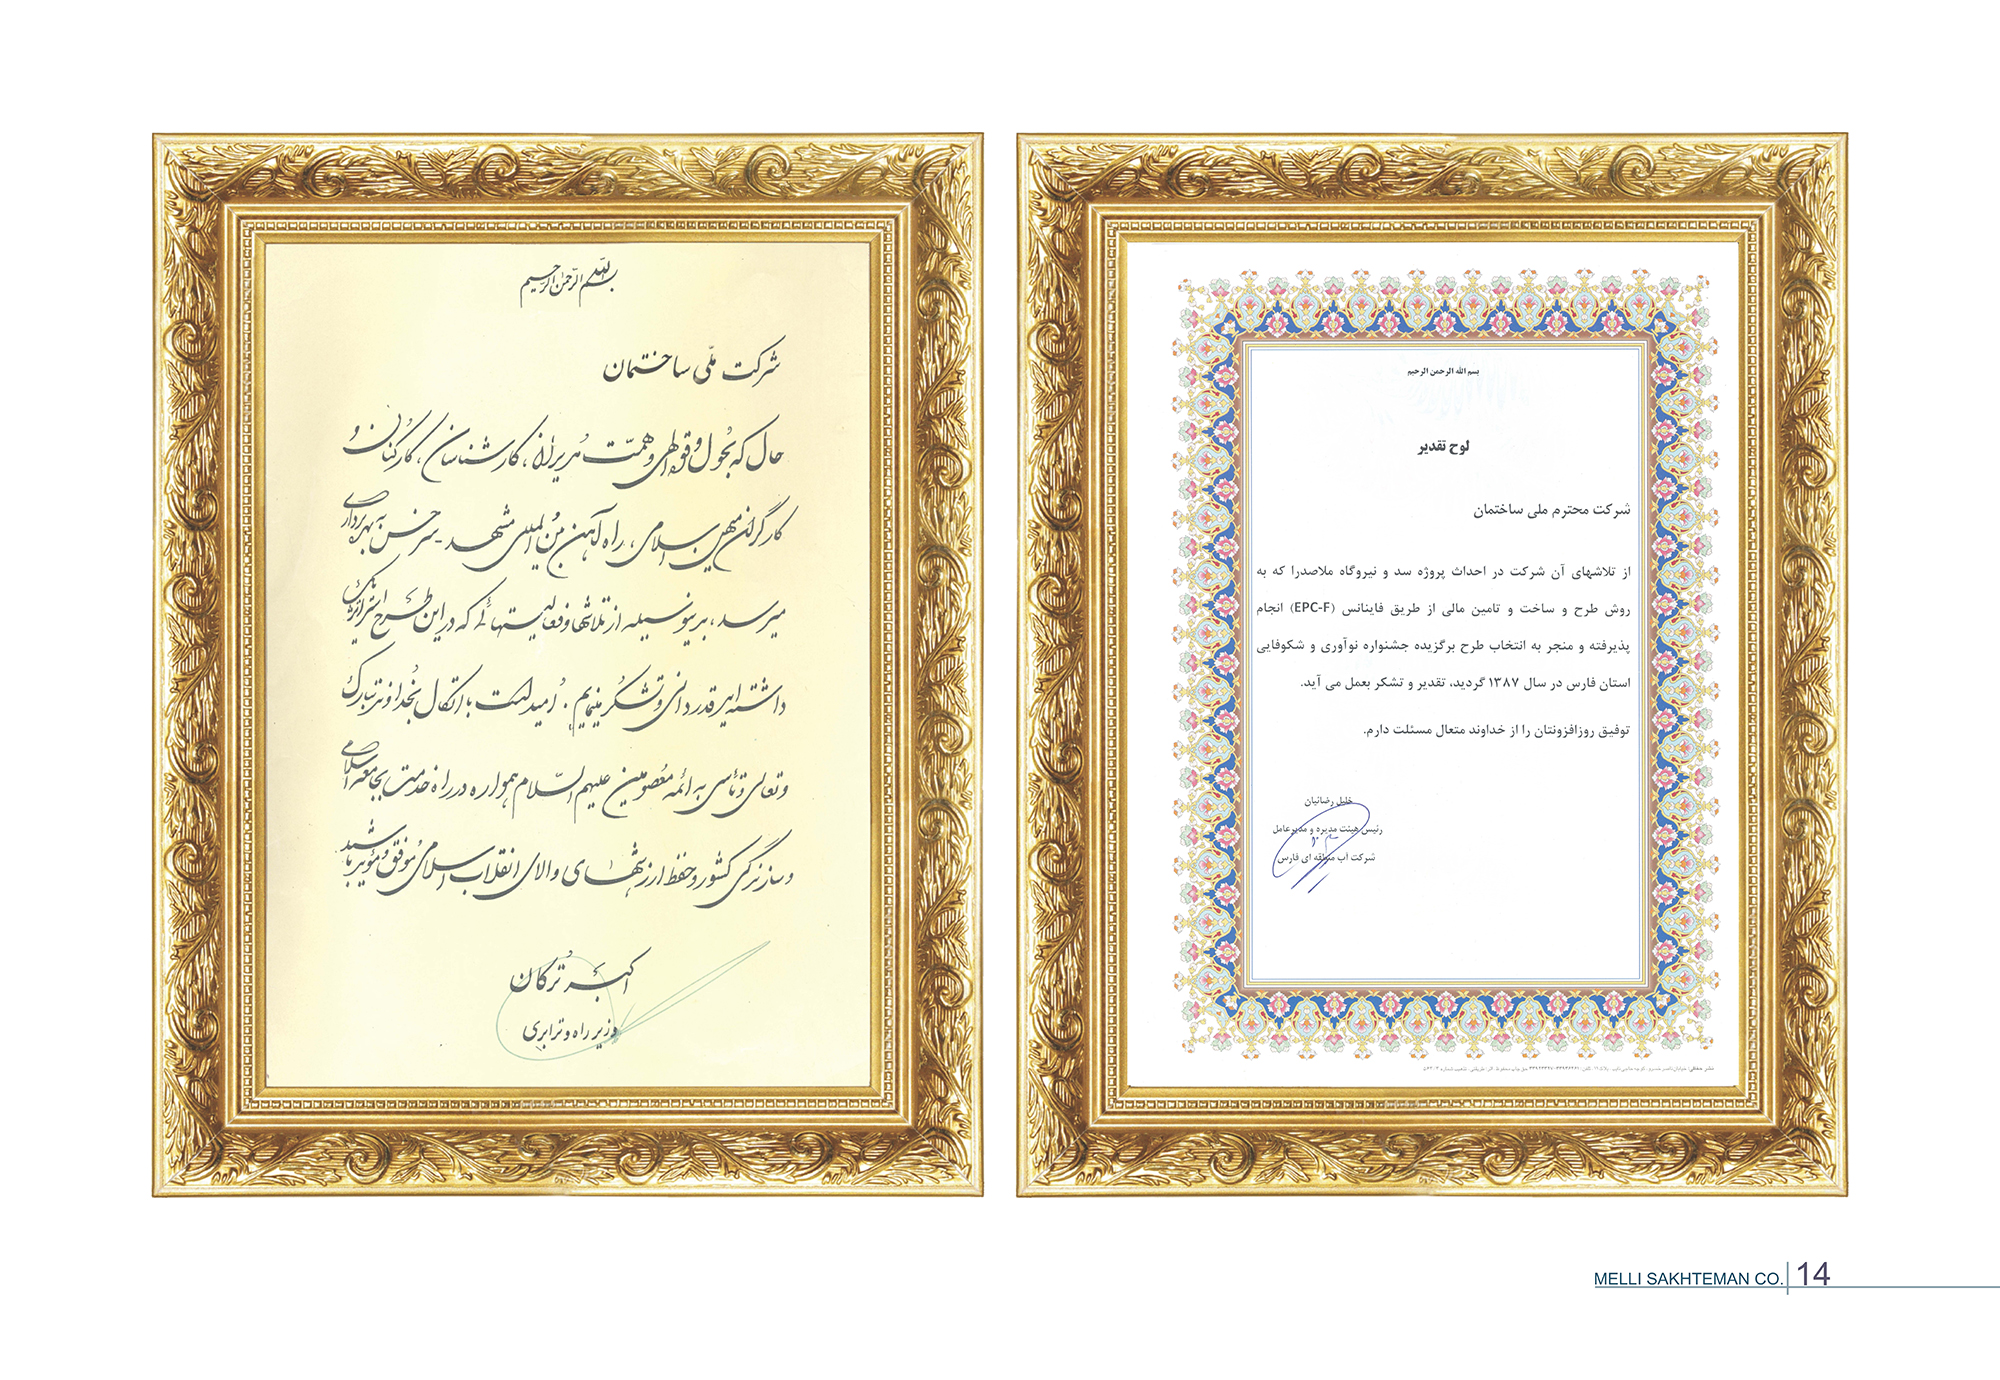 بسم الله الرحمن الرحیم
شرکت ملّی ساختمان
حال که بحول و قوه الهی و همّت مدیران، کارشناسان، کارکنان و
کارگران میهن اسلامی، راه آهن بین المللی مشهد - سرخس به بهره برداری
میرسد، بدینوسیله از تلاشها و فعالیتهائی که در این طرح
داشته اید قدردانی و تشکر مینمایم. امید است با اتکال بخداوند تبارک
و تعالی و تأسی به ائمه معصومین علیهم السّلام همواره در راه خدمت بجامعه اسلامی
و سازندگی کشور و حفظ ارزشهای والای انقلاب اسلامی موفق و مؤید باشید
اکبر ترکان
وزیر راه و ترابری
بسم الله الرحمن الرحیم
لوح تقدیر
شرکت محترم ملی ساختمان
از تلاشهای آن شرکت در احداث پروژه سد و نیروگاه ملاصدرا که به
روش طرح و ساخت و تامین مالی از طریق فاینانس (EPC-F) انجام
پذیرفته و منجر به انتخاب طرح برگزیده جشنواره نوآوری و شکوفایی
استان فارس در سال ۱۳۸۷ گردید، تقدیر و تشکر بعمل می آید.
توفیق روزافزونتان را از خداوند متعال مسئلت دارم.
خلیل رضائیان
رئیس هیئت مدیره و مدیرعامل
شرکت آب منطقه ای فارس
MELLI SAKHTEMAN CO. 14